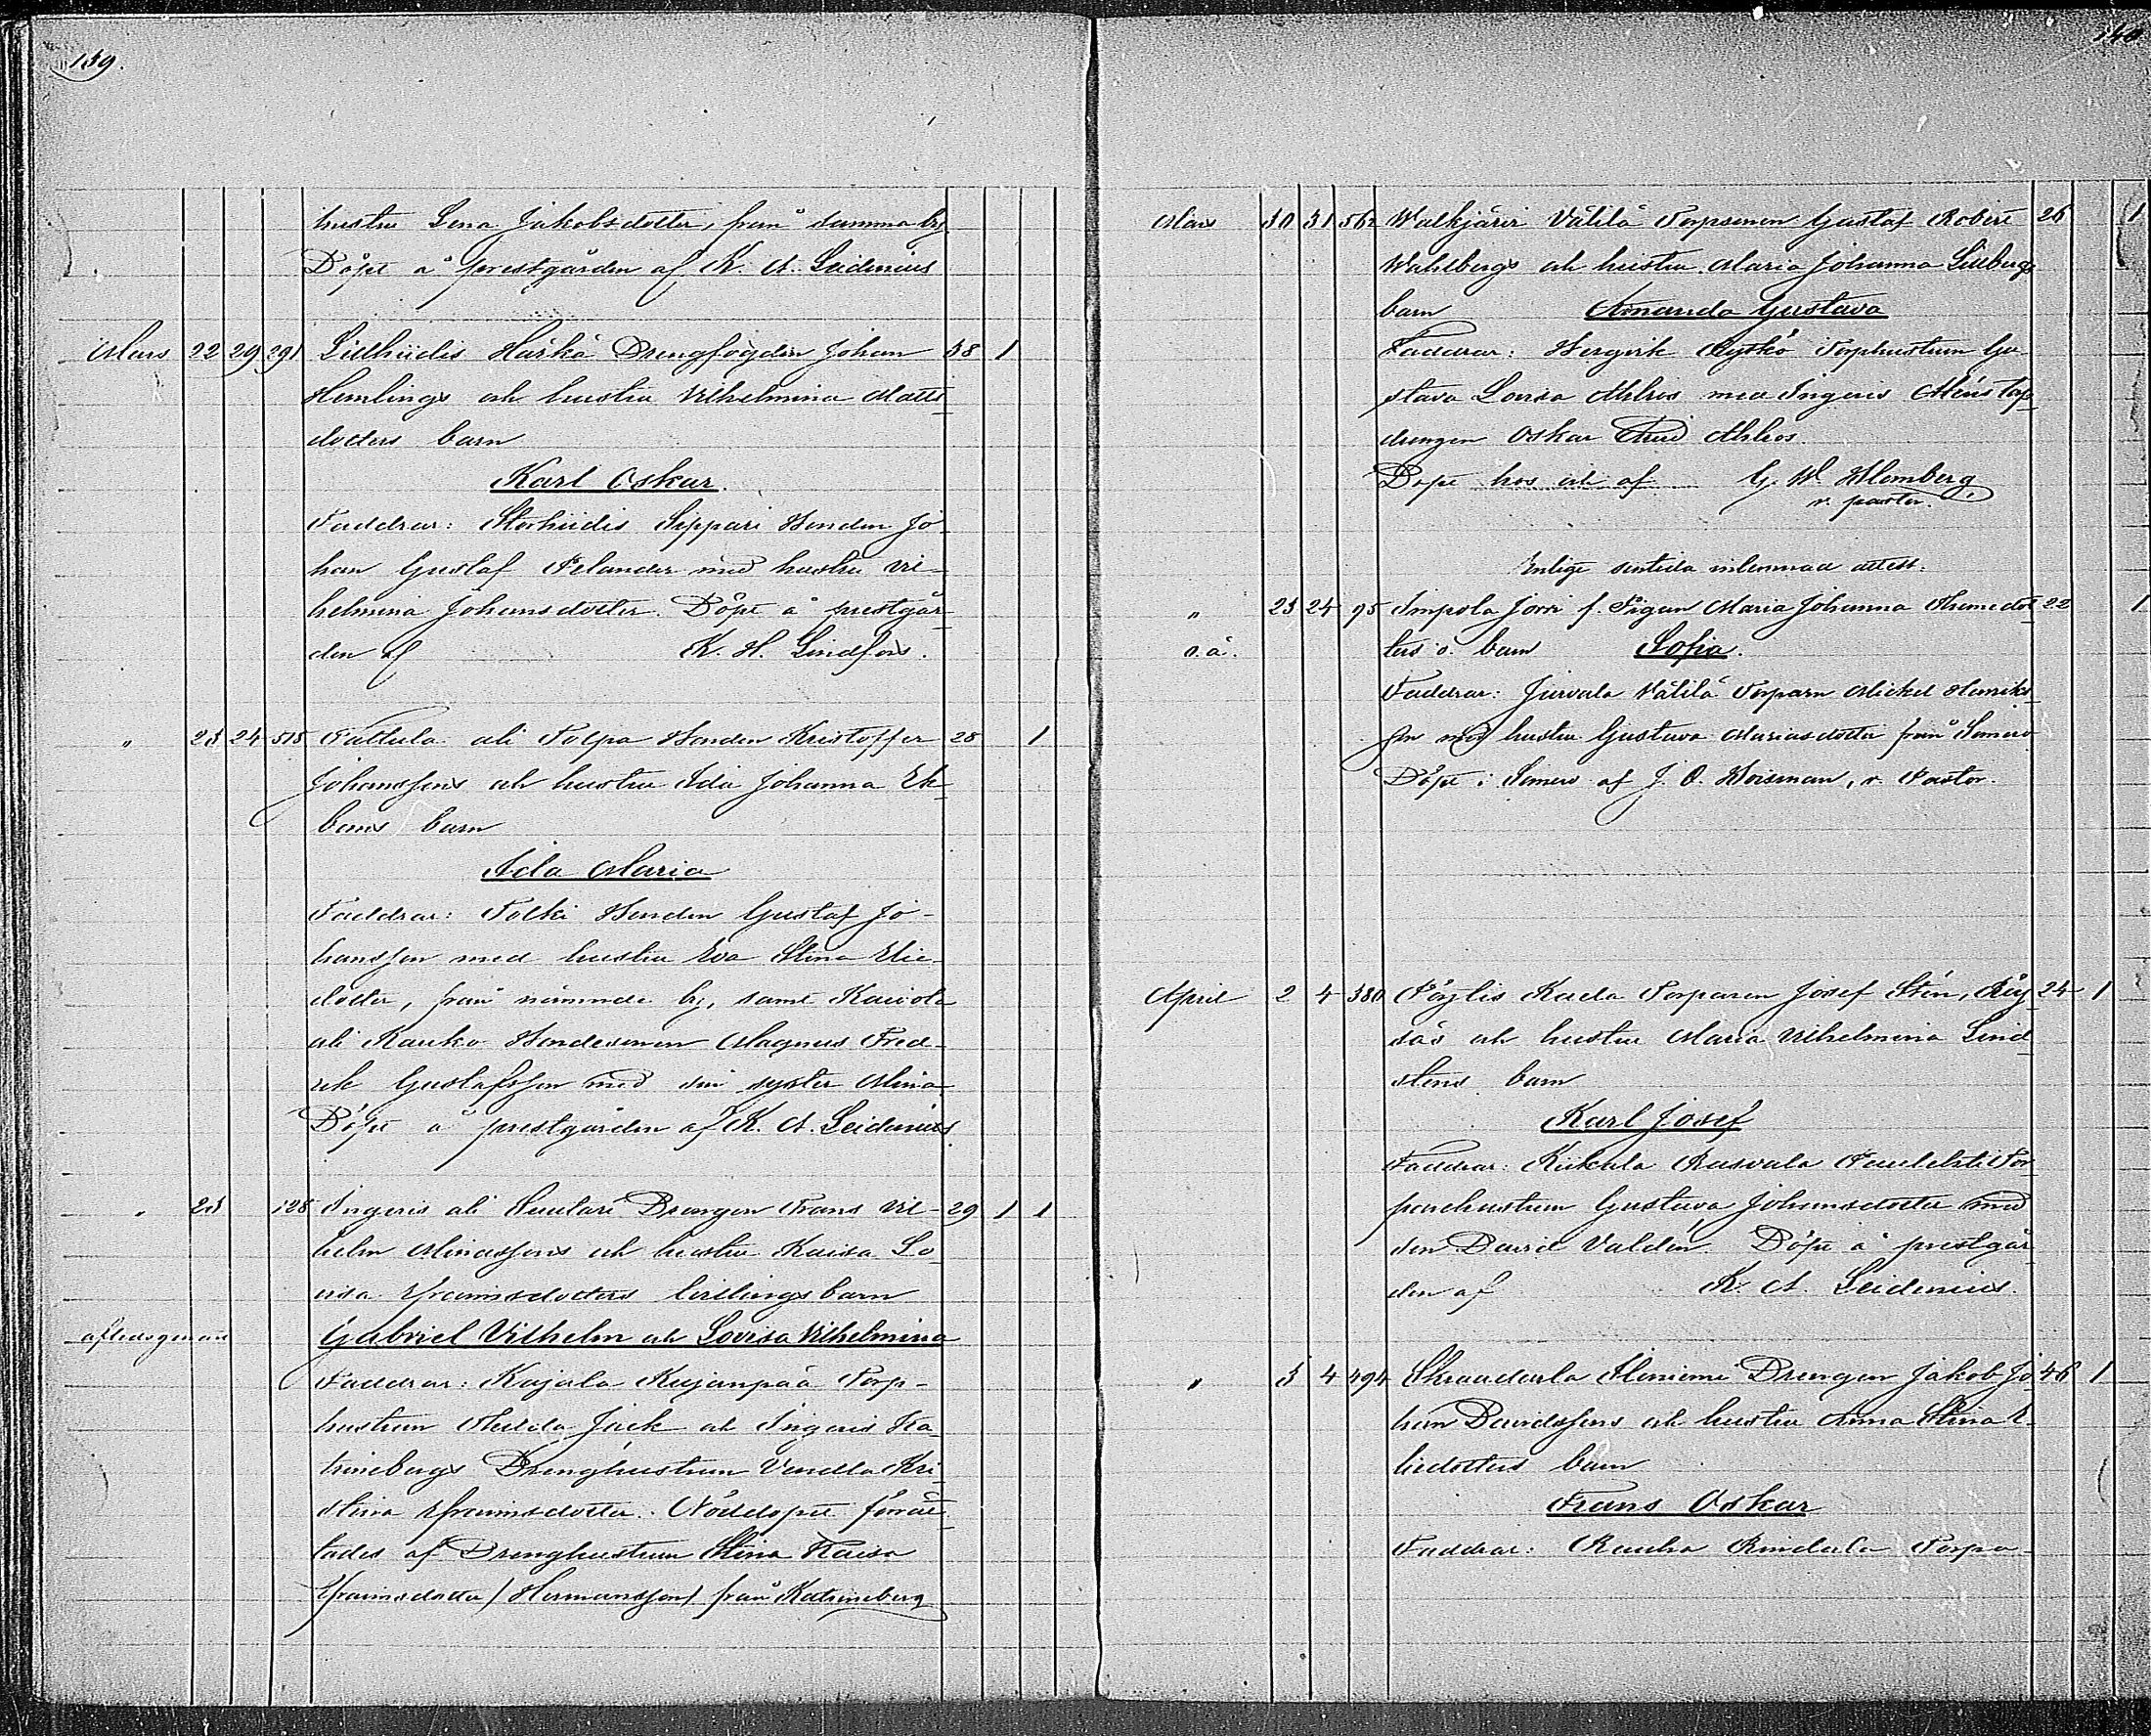 139.
hustru Lena Jakobsdotter, från samma by.
Döpt å prestgården af K. A. Leidenius
Mars 22 29 291 Lidhiidis Härkä Drengfogden Johan 38 1
Hemlings och hustru Vilhelmina Matts
dotters barn
Karl Oskar.
Faddrar: Storhiidis Sippari Bonden Jo
han Gustaf Felander med hustru Vil-
helmina Johansdotter. Döpt å prestgår-
den af K. H. Lindfors.
" 23 24 515 Talpa Bonden Kristoffer 28 1
Johanssons och hustru Ida Johanna Ek-
boms barn
Ida Maria
Faddrar: Tolki Bonden Gustaf Jo-
hansson med hustru Eva Stina Elie-
dotter, från nämnde by, samt
Kauko Bondesonen Magnus Fred-
rik Gustafsson med sin syster Mina.
Döpt å prestgården af K. A. Leidenius.
" 23 128 Ingeris ali Suutari Drengen Frans Vil- 29 1 1
helm Minassons och hustru Kaisa Lo
visa Efraimsdotters tvillingsbarn
afledo genast Gabriel Vilhelm och Lovisa Vilhelmina
Faddrar: Kujala Kujanpää Torp-
hustrun Jäck och Ingeris Ka-
trinebergs Drenghustrun Vendla Kri-
stina Efraimsdotter. Nöddopet förrät-
tades af Drenghustrun Stina Kaisa
Efraimsdotter / Hermansson / från Katrineberg
140
Mars 30 31 562 Walkjärvi Välilä Torparen Gustaf Robert 26 1
Wahlbergs och hustru Maria Johanna
barn Amanda Gustava
Faddrar: Torphustrun Gu-
stava Lovisa Ahlros med Ingeris
drengen Oskar Ahlros.
Döpt hos och af G. W. Blomberg
v. pastor.
Enligt sentida inlemnad attest.
" 23 24 95 Jmpola Jovi f. Pigan Maria Johanna 22 1
o.ä. ters o. barn Sofia.
Faddrar: Jurvala Välilä Torparn Mickel Henriks
son med hustru Gustava Mariasdotter från Somero
Döpt i Somero af J. O. Moisman, v. Pastor.
April 2 4 380 Pöytis Torparen Josef Stén, 24 1
och hustru Maria Vilhelmina Lind
stens barn
Karl Josef
Faddrar: Tor
parehustrun Gustava Johansdotter med
den David Valdén. Döpt å prestgår
den af K. A. Leidenius.
" 3 4 494 Skraadarla Drengen Jakob Jo 46 1
han Davidssons och hustru Anna Stina E-
liedotters barn
Frans Oskar
Faddrar: Rindala Torpa-